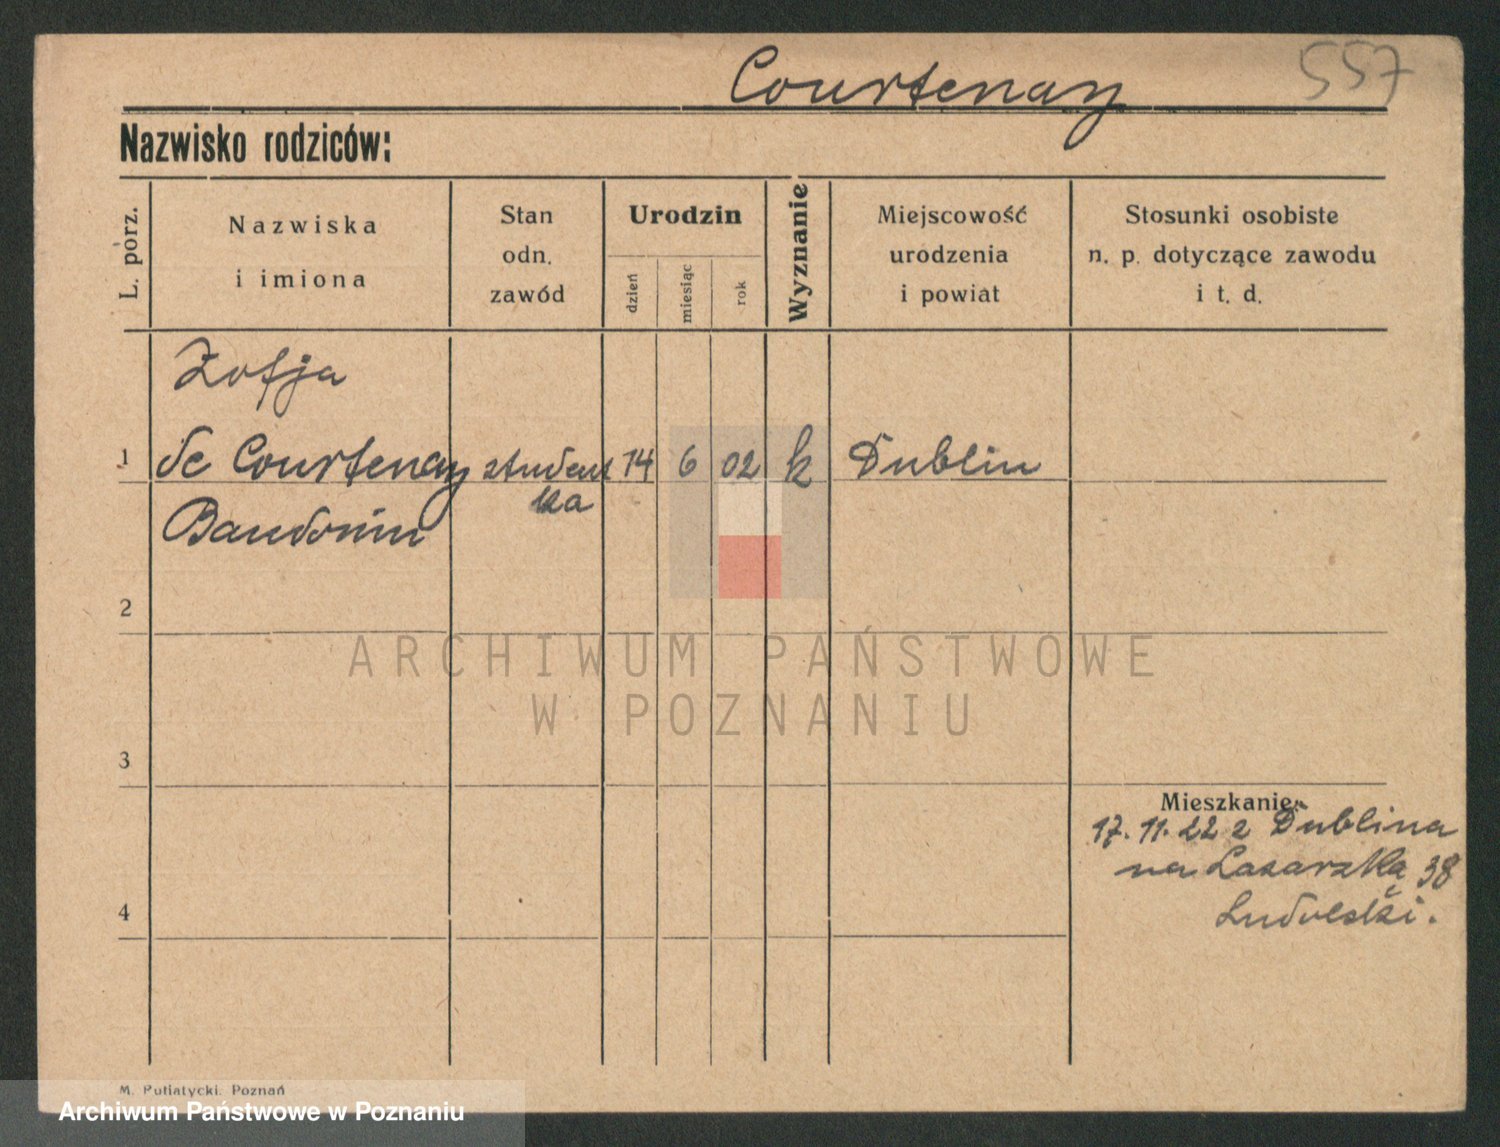 Courtenay
557
Nazwisko rodziców:
L. porz.
Nazwiska
i imiona
Stan
odn.
zawód
Urodzin
dzień
miesiąc
rok
Wyznanie
Miejscowość
urodzenia
i powiat
Stosunki osobiste
n. p. dotyczące zawodu
i t. d.
Zofja
1 de Courtenay student 14 6 02 k Dublin
ka
Baudouin
2
ARCHIWUM PAŃSTWOWE
W POZNANIU
3
Mieszkanie:
17. 11. 22 z Dublina
na Łazarską 38
4
M. Putiatycki. Poznań
Archiwum Państwowe w Poznaniu